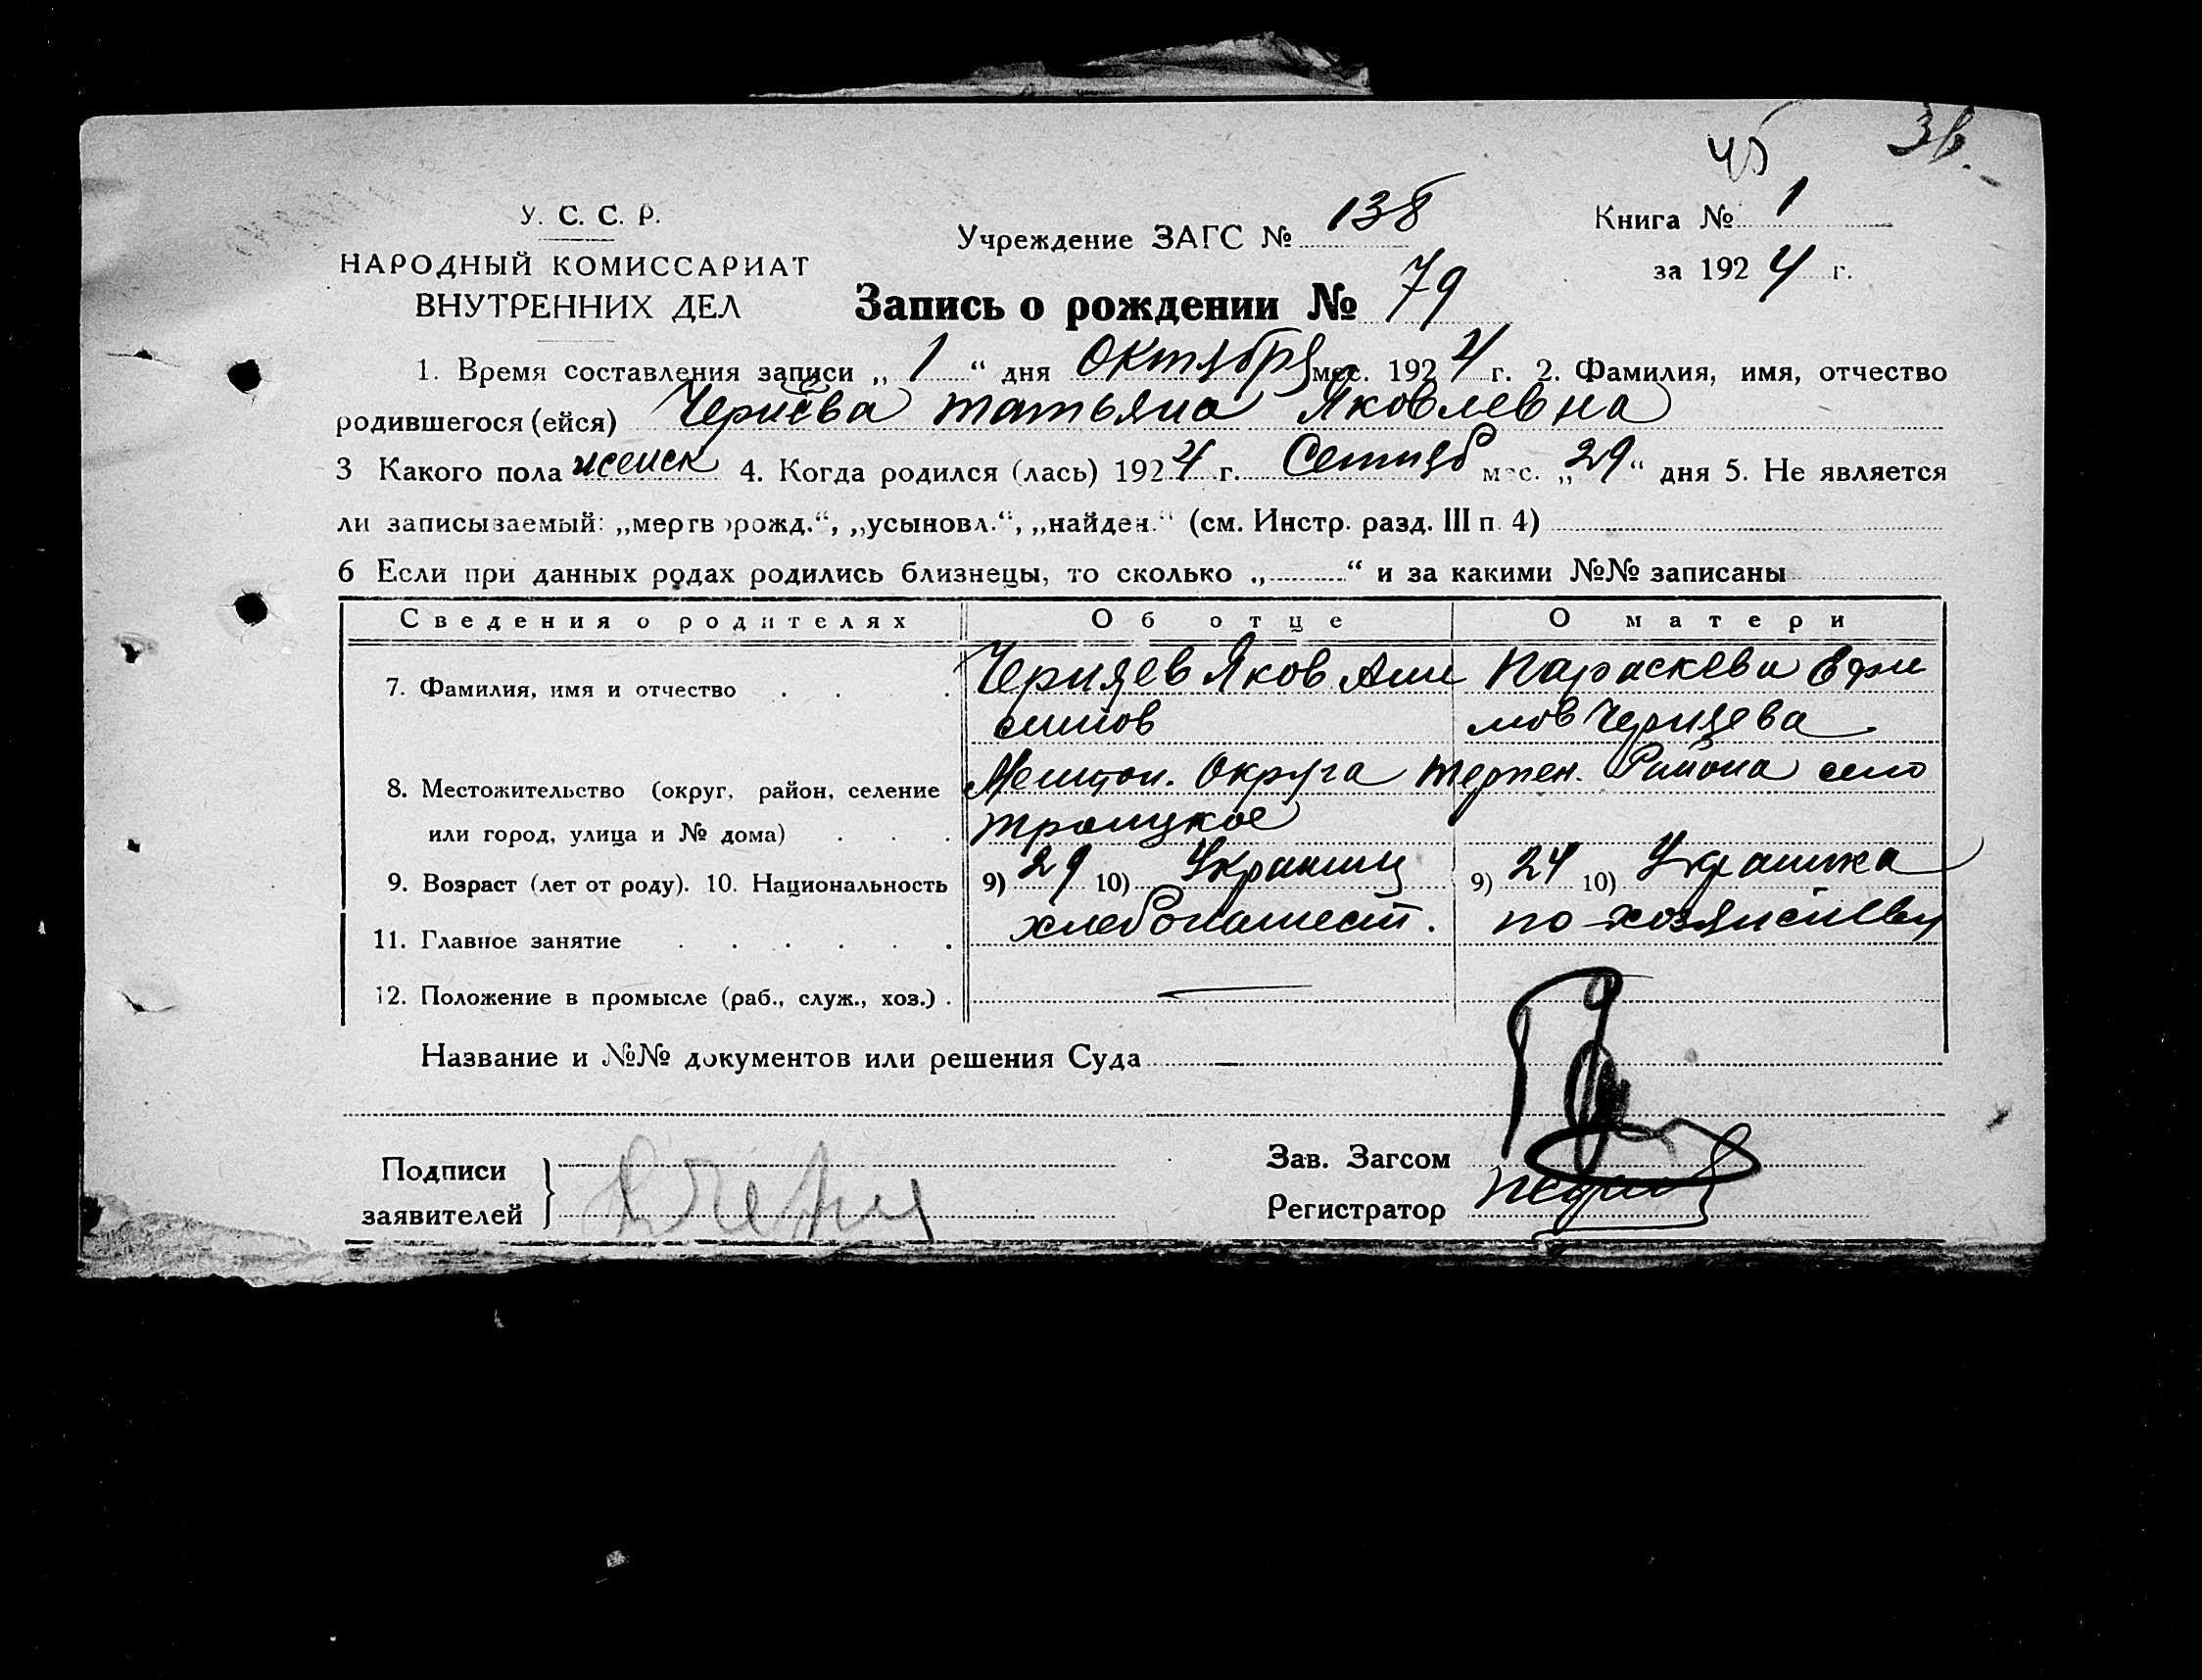 45 36.
У. С. С. Р.
НАРОДНЫЙ КОМИССАРИАТ
ВНУТРЕННИХ ДЕЛ
Учреждение ЗАГС № 138
Книга № 1
за 1924 г.
Запись о рождении № 79
1. Время составления записи „ 1 “ дня Октября мес. 1924 г. 2. Фамилия, имя, отчество
родившегося (ейся) Черняева Татьяна Яковлевна
3 Какого пола женск 4. Когда родился (лась) 1924 г. Сентяб мес. „29“ дня 5. Не является
ли записываемый: „мертворожд.“, „усыновл.“, „найден.“ (см. Инстр. разд. III п. 4)
6 Если при данных родах родились близнецы, то сколько „ “ и за какими №№ записаны
Сведения о родителях Об отце О матери
7. Фамилия, имя и отчество Черняев Яков Ани Параскева Ефи
симов мов Черняева
8. Местожительство (округ, район, селение Мелитоп. Округа Терпен. Района село
или город, улица и № дома) Троицкое
9. Возраст (лет от роду). 10. Национальность 9) 29 10) Украинц 9) 24 10) Украинка
11. Главное занятие хлебопашест. по хозяйству
12. Положение в промысле (раб., служ., хоз.) —
Название и №№ документов или решения Суда —
Подписи
заявителей
Зав. Загсом
Регистратор